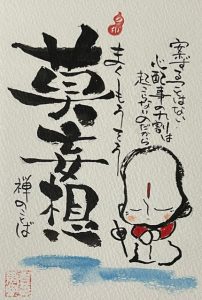 案ずることはない
心配事の九割は
起こらないのだから
まくもうそう
莫妄想
禅のことば